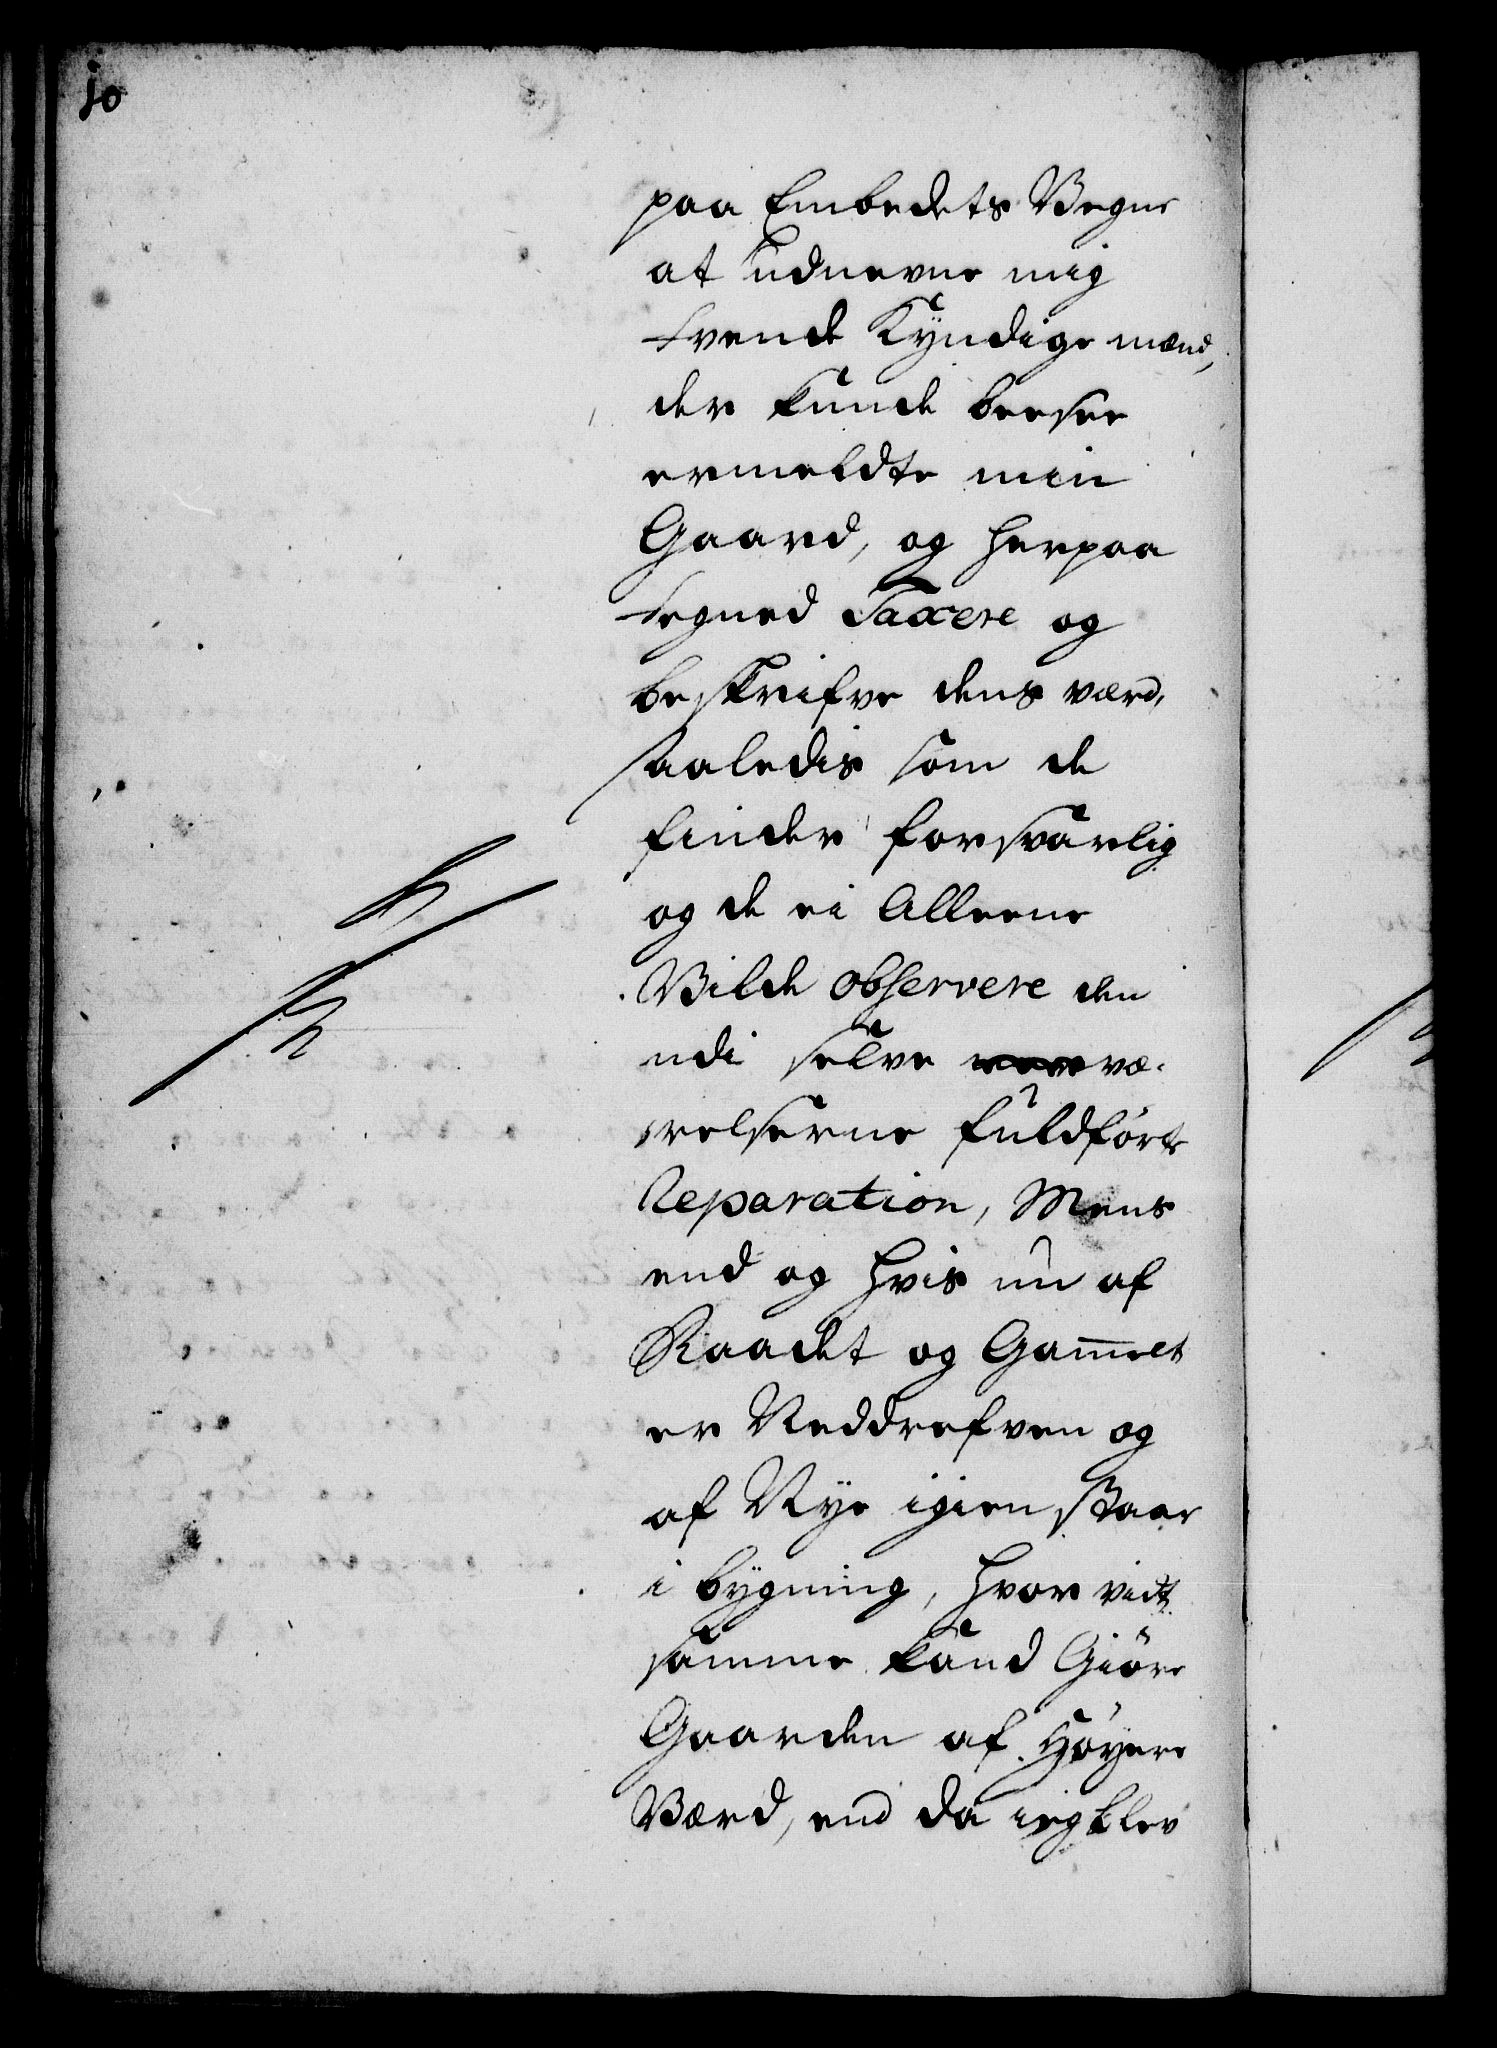 10
paa Embedets Vegne
at udnevne mig
tvende Kyndige mænd,
der kunde beesee
ermeldte min
Gaard, og herpaa
tegned Taxere og
beskrifve dens værd,
saaledis som de
finder forsvarlig
og de ei Alleene
Vilde observere den
udi selve væ-
relserne fuldførte
Reparation, Mens
end og hvis nu af
Raadet og Gam̅elt
er Neddrefven og
af Nye igien staar
i bygning, hvor vidt
samme kand Giøre
Gaarden af Høyere
Værd, end da ieg blev